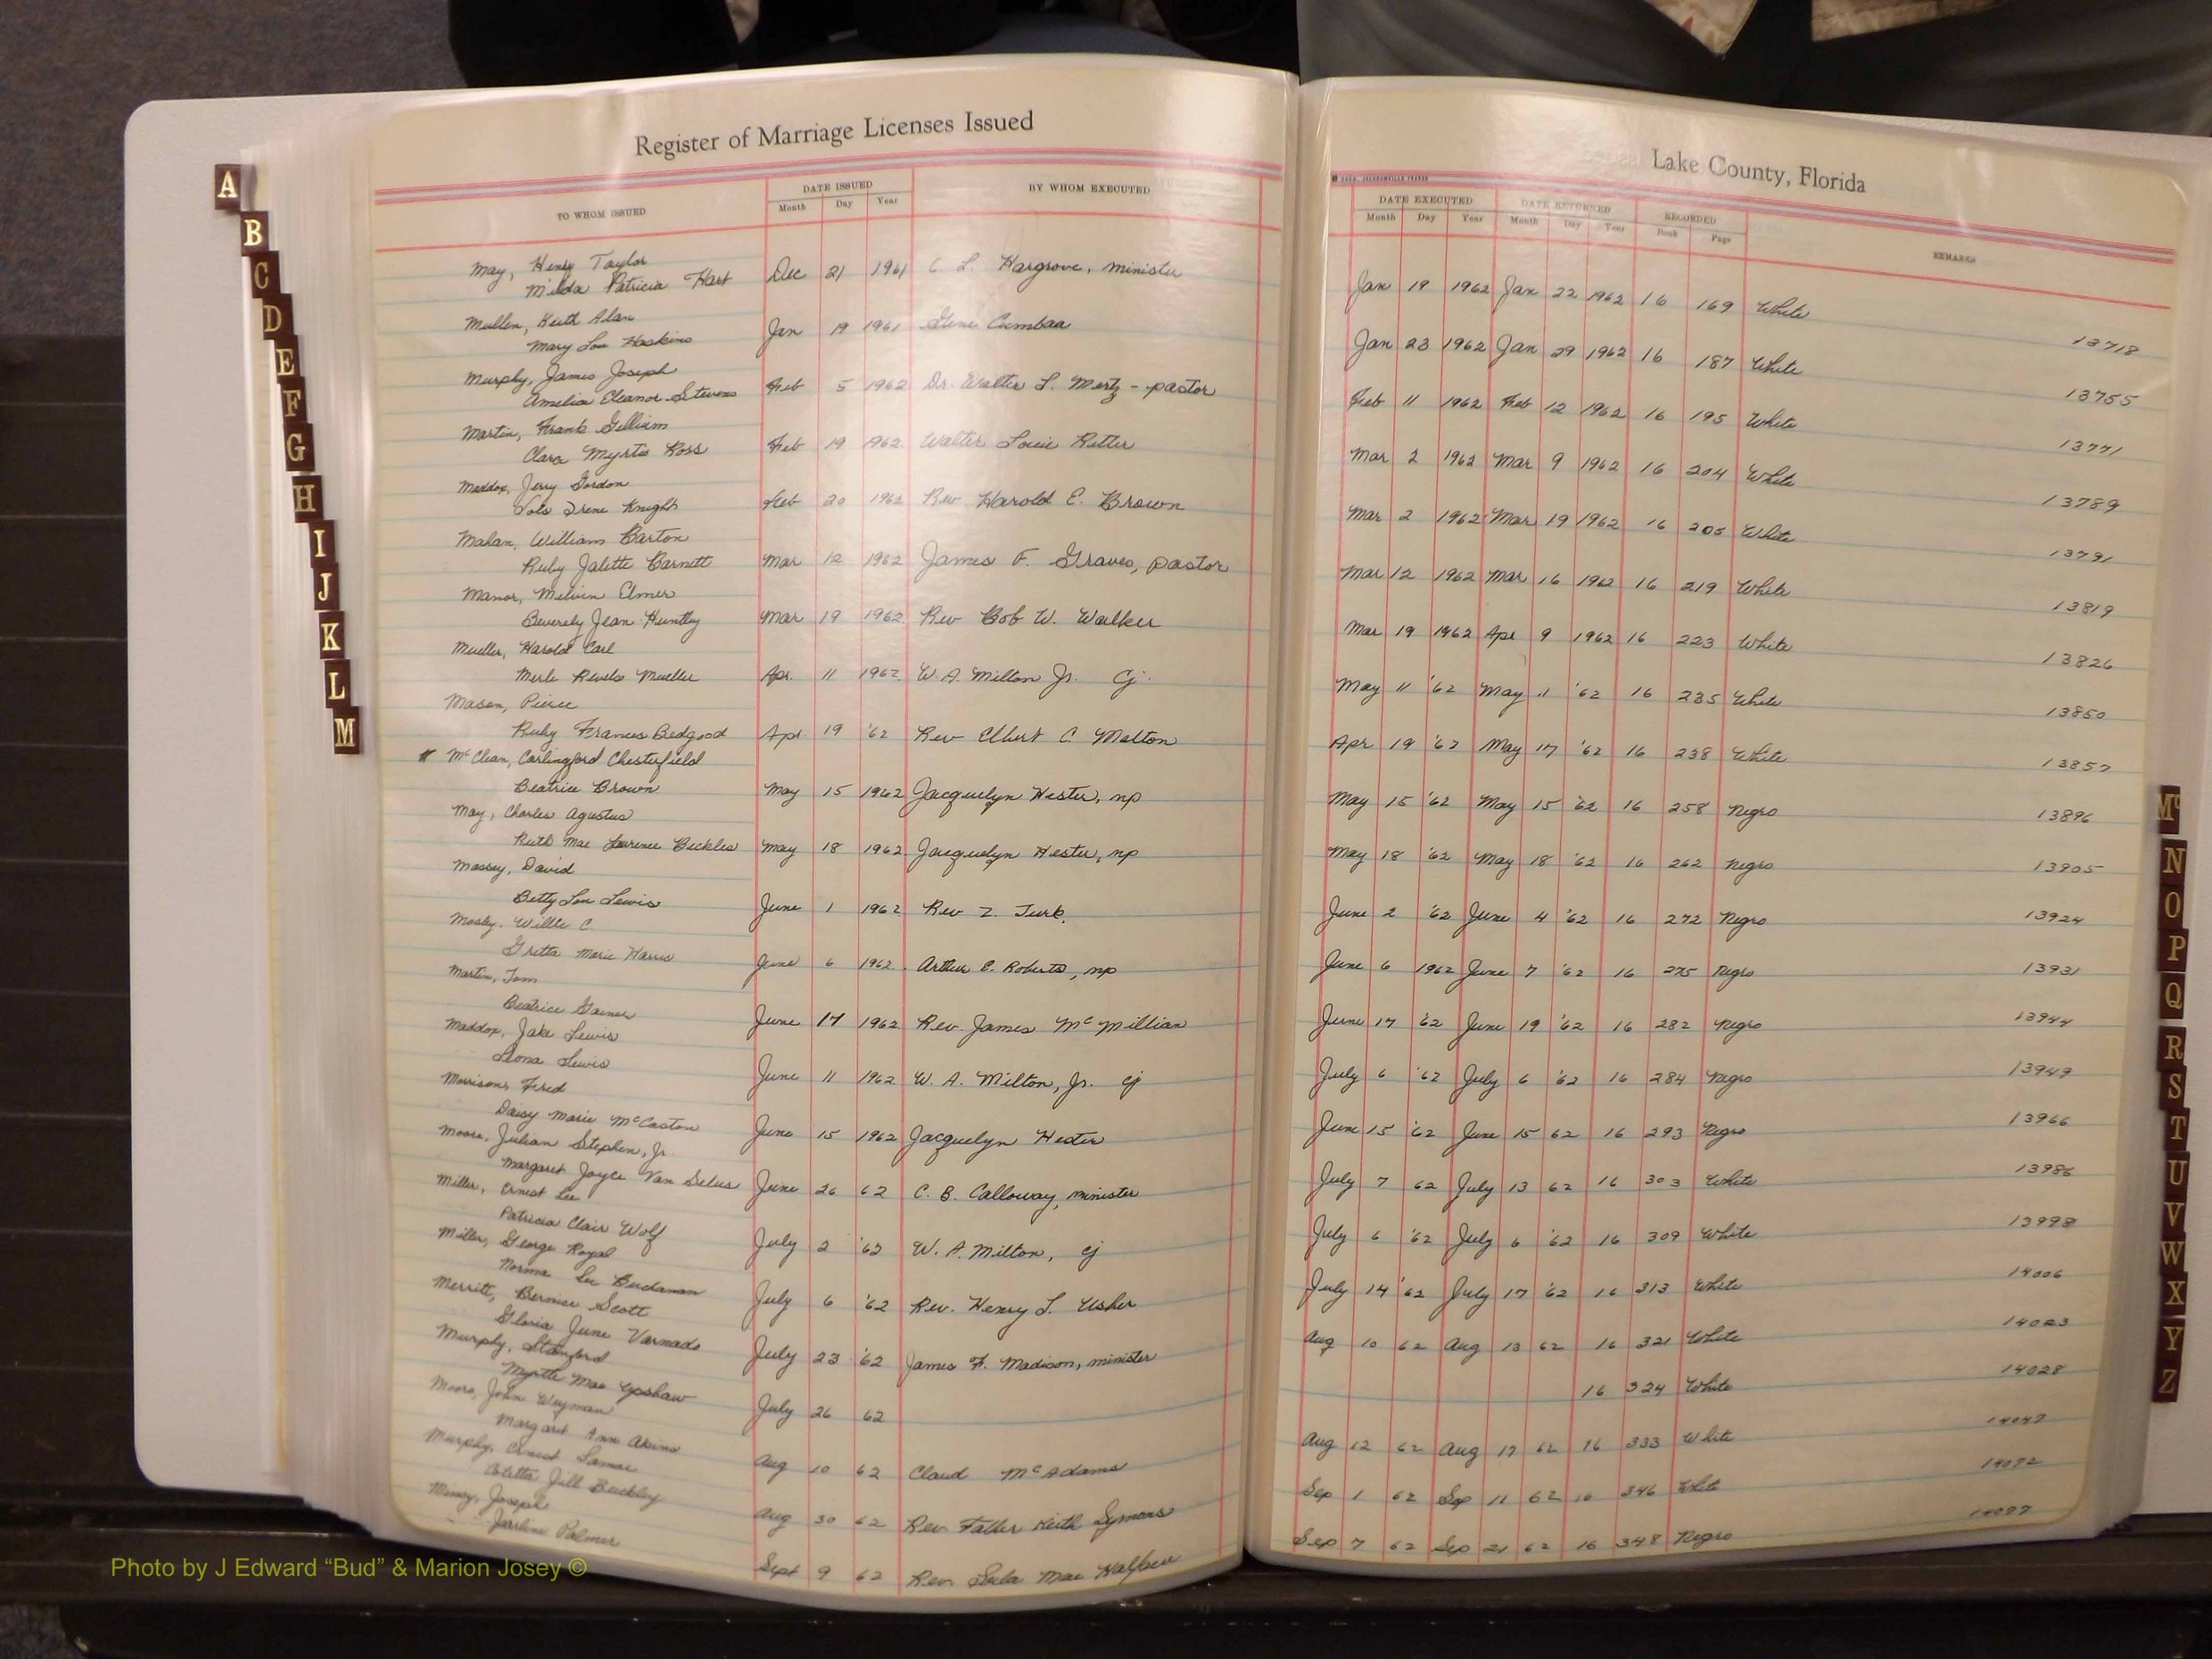 Register of Marriage Licenses Issued
Lake County, Florida
TO WHOM ISSUED
DATE ISSUED
Month Day Year
BY WHOM EXECUTED
DATE EXECUTED
Month Day Year
DATE RETURNED
Month Day Year
RECORDED
Book Page
REMARKS
May, Henry Taylor
Milda Patricia Hart Dec 21 1961 C. L. Hargrove, minister Jan 19 1962 Jan 22 1962 16 169 White 13718
Mullen, Keith Alan
Mary Lou Haskins Jan 19 1961 Gene Cumbaa Jan 23 1962 Jan 29 1962 16 187 White 13755
Murphy, James Joseph
Amelia Eleanor Stevens Feb 5 1962 Dr. Walter L. Mertz - pastor Feb 11 1962 Feb 12 1962 16 195 White 13771
Martin, Frank Gilliam
Clara Myrtis Ross Feb 19 1962 Walter Louie Ritter Mar 2 1962 Mar 9 1962 16 204 White 13789
Maddox, Jerry Gordon
Lola Irene Knight Feb 20 1962 Rev Harold E. Brown Mar 2 1962 Mar 19 1962 16 205 White 13791
Mahan, William Barton
Ruby Jalette Barnett Mar 12 1962 James F. Graves, pastor Mar 12 1962 Mar 16 1962 16 219 White 13819
Manor, Melvin Elmer
Beverly Jean Huntley Mar 19 1962 Rev Bob W. Walker Mar 19 1962 Apr 9 1962 16 223 White 13826
Mueller, Harold Carl
Merle Revels Mueller Apr. 11 1962 W. A. Milton Jr. Cj. May 11 '62 May 11 '62 16 235 White 13850
Mason, Pierce
Ruby Frances Bedgood Apr 19 '62 Rev Elbert C. Melton Apr 19 '62 May 17 '62 16 238 White 13857
McClean, Carlingford Chesterfield
Beatrice Brown May 15 1962 Jacquelyn Hester, np May 15 '62 May 15 '62 16 258 Negro 13896
May, Charles Agustus
Ruth Mae Laurence Beckles May 18 1962 Jacquelyn Hester, np May 18 '62 May 18 '62 16 262 Negro 13905
Massey, David
Betty Lou Lewis June 1 1962 Rev Z. Turk. June 2 '62 June 4 '62 16 272 Negro 13924
Mosley, Willie C.
Gretta Marie Harris June 6 1962 Arthur E. Roberts, np June 6 1962 June 7 '62 16 275 Negro 13931
Martin, Tom
Beatrice Gainer June 17 1962 Rev. James McMillian June 17 '62 June 19 '62 16 282 Negro 13944
Maddox, Jake Lewis
Leona Lewis June 11 1962 W. A. Milton, Jr. cj July 6 '62 July 6 '62 16 284 Negro 13949
Morrison, Fred
Daisy Marie McCaston June 15 1962 Jacquelyn Hester June 15 '62 June 15 62 16 293 Negro 13966
Moore, Julian Stephen, Jr.
Margaret Joyce Van Selus June 26 62 C. B. Calloway, minister July 7 62 July 13 62 16 303 White 13986
Miller, Ernest Lee
Patricia Clair Wolf July 2 '62 W. A. Milton, cj July 6 '62 July 6 '62 16 309 White 13998
Miller, George Royal
Norma Lee July 6 '62 Rev. Henry L. Usher July 14 '62 July 17 '62 16 313 White 14006
Merritt, Bernice Scott
Gloria June Varnado July 23 '62 James F. Madison, minister Aug 10 62 Aug 13 62 16 321 White 14023
Murphy, Stanford
Myrtle Mae Upshaw July 26 62 16 324 White 14028
Moore, John Weyman
Margaret Ann Akins Aug 10 62 Claud McAdams Aug 12 62 Aug 17 62 16 333 White 14047
Murphy, Ernest Lamar
Coletta Jill Buckley Aug 30 62 Rev. Father Keith Symons Sep 1 62 Sep 11 62 16 346 White 14072
Joseph
Palmer Sept 9 62 Rev. Lula Mae Sep 7 62 Sep 21 62 16 348 Negro 14077
A
B
C
D
E
F
G
H
I
J
K
L
M
Mc
N
O
P
Q
R
S
T
U
V
W
X
Y
Z
Photo by J Edward “Bud” & Marion Josey ©